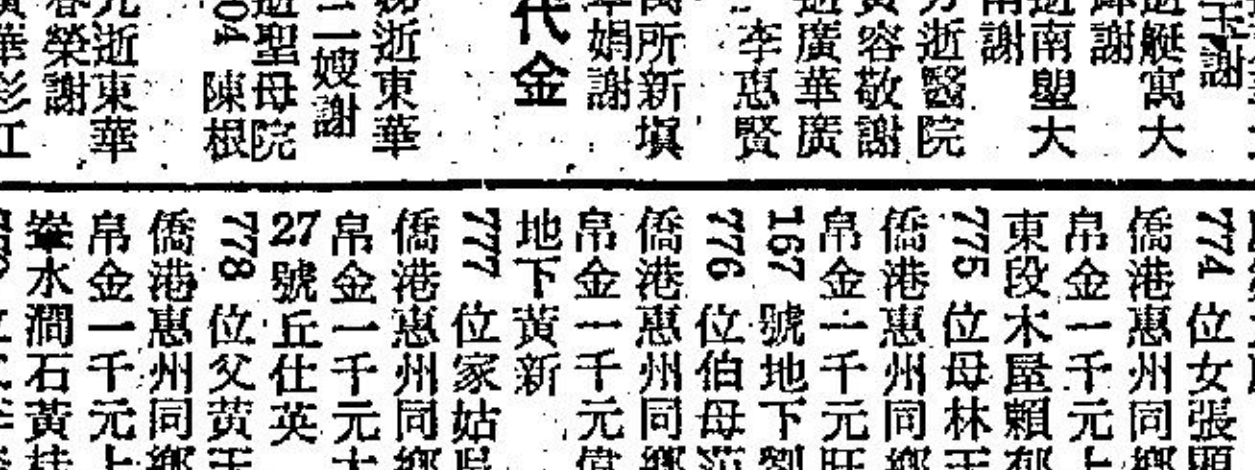 玉謝
逝艇寓大
謝
逝南塱大
謝
逝醫院
容敬謝
逝廣華廣
李惠賢
所新填
娟謝
代金
逝東華
二嫂謝
逝聖母院
04 陳根
逝東華
榮謝
774 位女張
僑港惠州同鄉
帛金一千元
東段木屋賴
775 位母林
僑港惠州同鄉
帛金一千元旺
167 號地下劉
776 位伯母范
僑港惠州同鄉
帛金一千元偉
地下黃新
777 位家姑吳
僑港惠州同鄉
帛金一千元大
27號丘仕英
778 位父黃
僑港惠州同鄉
帛金一千元上
輋水澗石黃桂